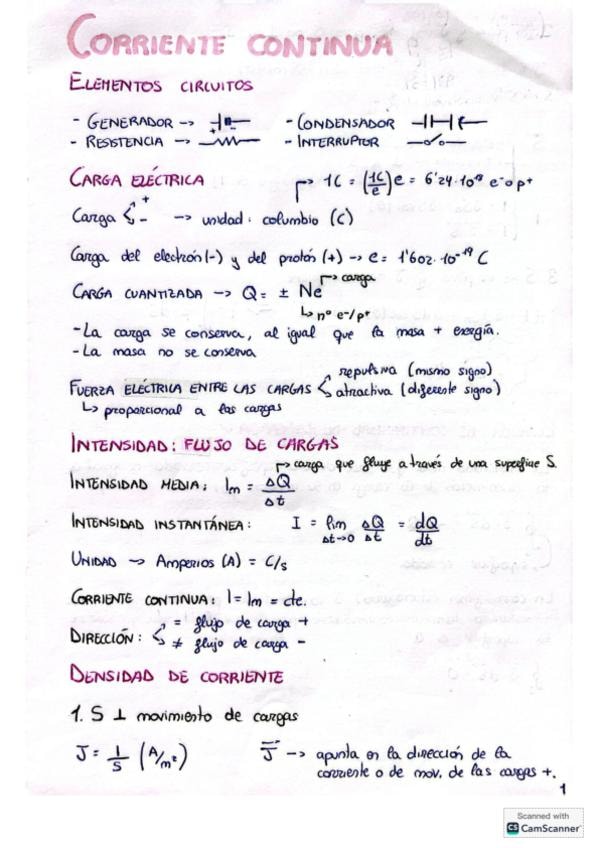 CORRIENTE CONTINUA
ELEMENTOS CIRCUITOS
- GENERADOR -> + - - CONDENSADOR
- RESISTENCIA -> - INTERRUPTOR
CARGA ELÉCTRICA 1C = (1C/e) e = 6'24·10¹⁸ e⁻ o p⁺
Carga < + - -> unidad: columbio (C)
Carga del electrón (-) y del protón (+) -> e = 1'602·10⁻¹⁹ C
-> carga
CARGA CUANTIZADA -> Q = ± Ne
-> nº e⁻/p⁺
- La carga se conserva, al igual que la masa + energía.
- La masa no se conserva
repulsiva (mismo signo)
FUERZA ELÉCTRICA ENTRE LAS CARGAS < atractiva (diferente signo)
-> proporcional a las cargas
INTENSIDAD: FLUJO DE CARGAS
-> carga que fluye a través de una superficie S.
INTENSIDAD MEDIA: Im = ΔQ/Δt
INTENSIDAD INSTANTÁNEA: I = lim Δt->0 ΔQ/Δt = dQ/dt
UNIDAD -> Amperios (A) = C/s
CORRIENTE CONTINUA: I = Im = cte.
DIRECCIÓN: < = flujo de carga +
≠ flujo de carga -
DENSIDAD DE CORRIENTE
1. S ⊥ movimiento de cargas
J = I/S (A/m²) J -> apunta en la dirección de la
corriente o de mov. de las cargas +.
1
Scanned with
CS CamScanner